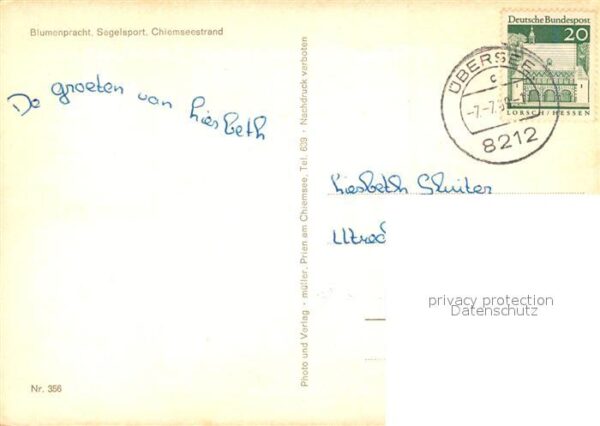 Blumenpracht, Segelsport, Chiemseestrand
De groeten van Liesbeth
Nr. 356
Photo und Verlag - müller, Prien am Chiemsee, Tel. 639 · Nachdruck verboten
Deutsche Bundespost
20
LORSCH/HESSEN
ÜBERSEE
c
8212
Liesbeth Sluiter
privacy protection
Datenschutz